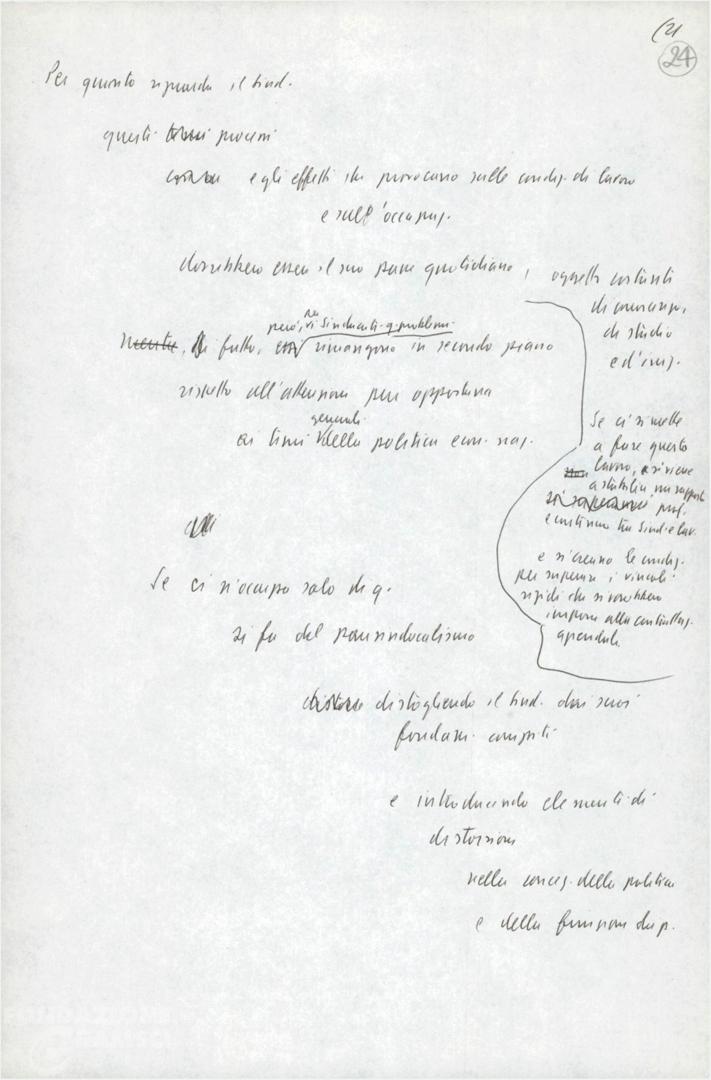 (21
24
Per quanto riguarda il sind.
questi processi
e gli effetti che provocano sulle condiz. di lavoro
e sull'occupaz.
dovrebbero essere il suo pane quotidiano, oggetto costanti
di conoscenza,
di studio
e d'iniz.
però, nei Sindacati q. problemi
Di fatto, rimangono in secondo piano
rispetto all'attenzione pure opportuna
generali
ai temi della politica econ. naz.
Se ci si mette
a fare questo
lavoro, si viene
a stabilire un rapporto
prof.
e continuo tra Sind. e lav.
e si creano le condiz.
per superare i vincoli
rigidi che si vorrebbero
imporre alla contrattaz.
aziendale.
Se ci si occupa solo di q.
si fa del pansindacalismo
distogliendo il sind. dai suoi
fondam. compiti
e introducendo elementi di
distorsione
nella concez. della politica
e della funzione dei p.